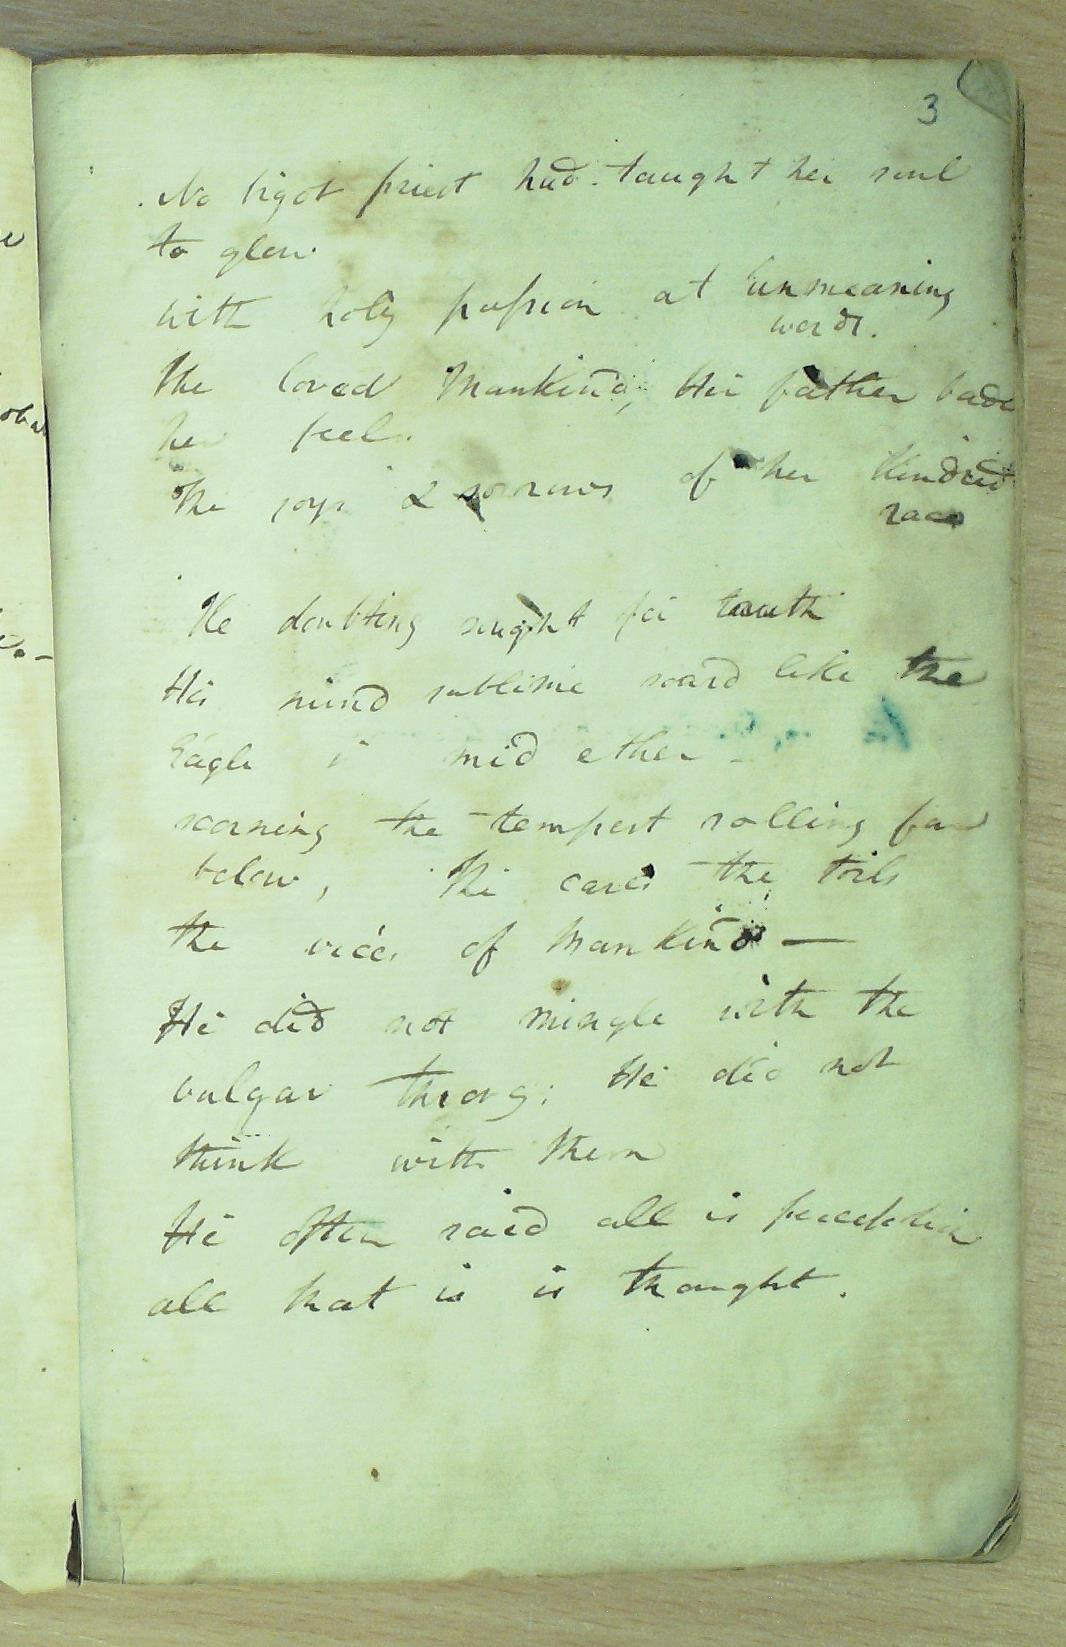 3
No bigot priest had taught her soul
to glow
with holy passion at unmeaning
words.
She loved Mankind, His father bade
her feel.
The joys & sorrows of her Kindred
race
He doubting sought for truth
His mind sublime soard like the
Eagle i mid ether –
scorning the tempest rolling far
below, The cares the toils
the vices of Mankind —
He did not mingle with the
vulgar throng; He did not
think with them
He often said all is
all that is is thought.